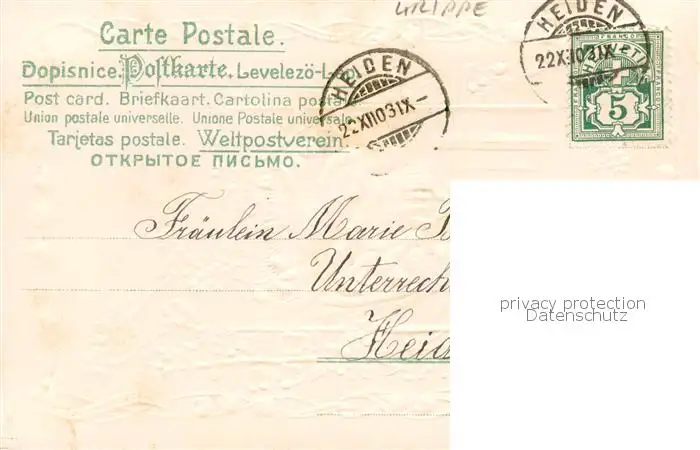 KRIPPE
Carte Postale.
Dopisnice. Postkarte. Levelező-L
Post card. Briefkaart. Cartolina postal
Union postale universelle. Unione Postale universale
Tarjetas postale. Weltpostverein.
ОТКРЫТОЕ ПИСЬМО.
HEIDEN
22.XII.03.IX-
HEIDEN
22.XII.03.IX
FRANCO
HELVETIA
5
Fräulein Marie
Unterrech
Heid
privacy protection
Datenschutz